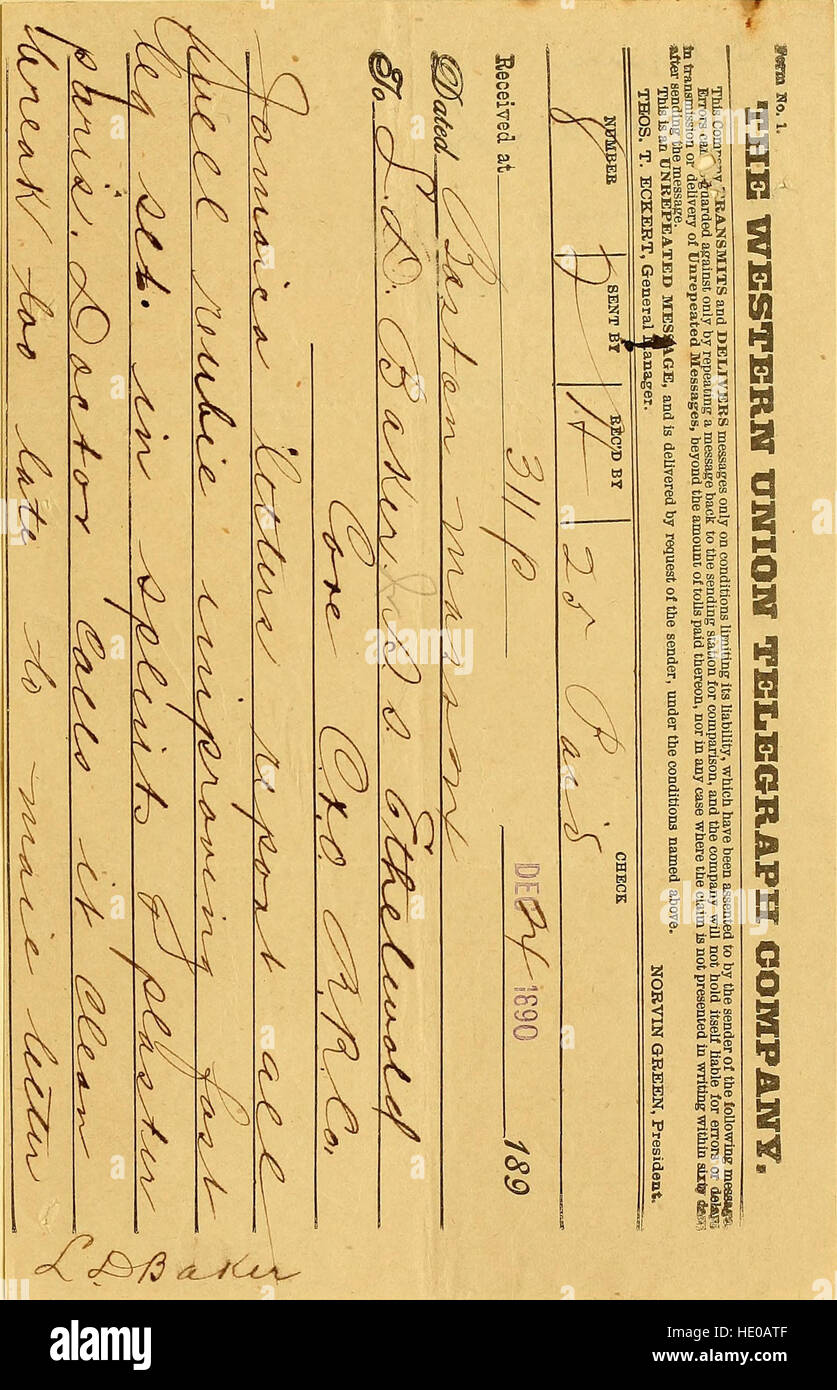 Form No. 1.
THE WESTERN UNION TELEGRAPH COMPANY.
This Company TRANSMITS and DELIVERS messages only on conditions limiting its liability, which have been assented to by the sender of the following message.
Errors can be guarded against only by repeating a message back to the sending station for comparison, and the company will not hold itself liable for errors or delays
in transmission or delivery of Unrepeated Messages, beyond the amount of tolls paid thereon, nor in any case where the claim is not presented in writing within sixty days
after sending the message.
This is an UNREPEATED MESSAGE, and is delivered by request of the sender, under the conditions named above.
THOS. T. ECKERT, General Manager. NORVIN GREEN, President.
NUMBER SENT BY REC'D BY CHECK
8 D H 25 Paid
Received at 311 p DEC 24 1890 189
Dated Boston mass
To L. D. Baker S. S. Ethelwold
Care C.&O. R.R.Co.
Jamaica letters report all
well reubie improving fast
leg set. in splints & plaster
paris. Doctor Calls it Clean
break too late to maie letter
L D Baker
alamy
Image ID: HE0ATF
www.alamy.com